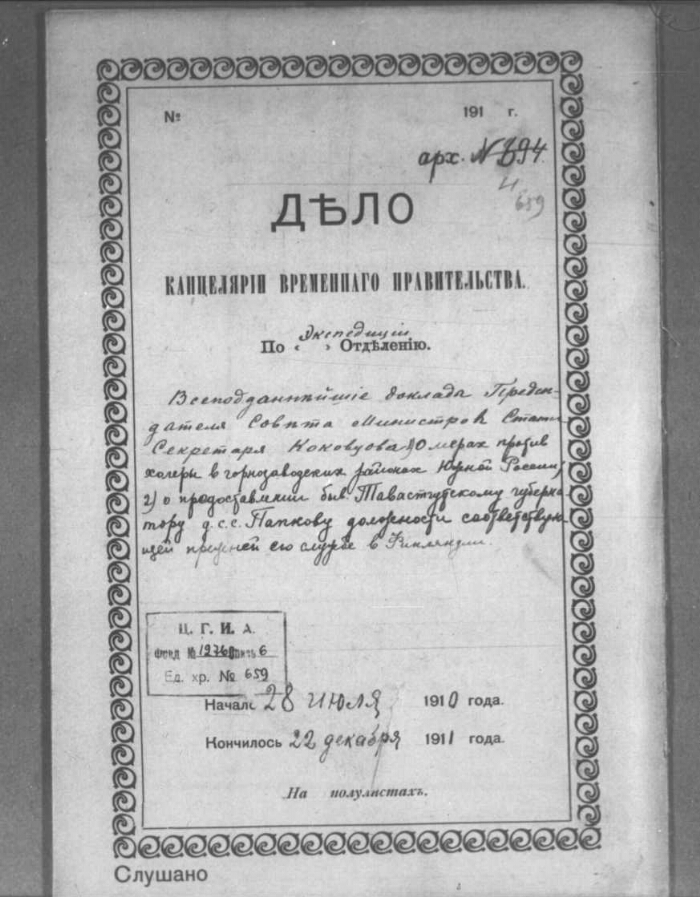 № 191 г.
арх. № 694
и
659
ДѢЛО
КАНЦЕЛЯРІИ ВРЕМЕННАГО ПРАВИТЕЛЬСТВА.
Экспедиціи
По « » Отдѣленію.
Всеподданнѣйшіе доклада Предсѣ-
дателя Совѣта Министров Статс-
Секретаря Коковцова 1) О мерах против
холеры в горнозаводских районах Южной России,
2) о предоставлении быв. Тавастгусскому губерна-
тору д.с.с. Папкову должности соответствую-
щей прежней его службе в Финляндии.
Ц. Г. И. А.
Фонд № 1276 Опись 6
Ед. хр. № 659
Начало 28 июля 1910 года.
Кончилось 22 декабря 1911 года.
На полулистахъ.
Слушано